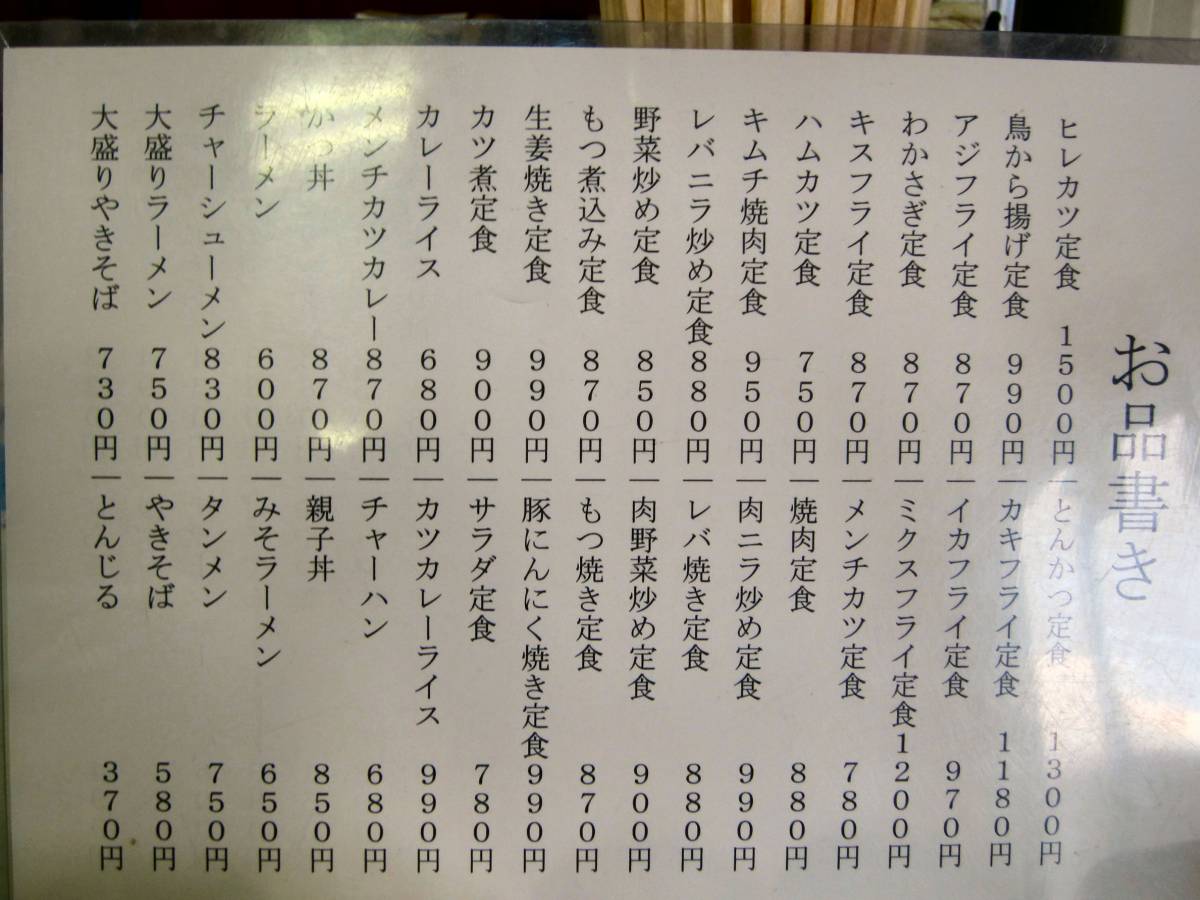 お品書き
ヒレカツ定食 1500円|とんかつ定食 1300円
鳥から揚げ定食 990円|カキフライ定食 1180円
アジフライ定食 870円|イカフライ定食 970円
わかさぎ定食 870円|ミクスフライ定食1200円
キスフライ定食 870円|メンチカツ定食 780円
ハムカツ定食 750円|焼肉定食 880円
キムチ焼肉定食 950円|肉ニラ炒め定食 990円
レバニラ炒め定食880円|レバ焼き定食 880円
野菜炒め定食 850円|肉野菜炒め定食 900円
もつ煮込み定食 870円|もつ焼き定食 870円
生姜焼き定食 990円|豚にんにく焼き定食990円
カツ煮定食 900円|サラダ定食 780円
カレーライス 680円|カツカレーライス 990円
メンチカツカレー870円|チャーハン 680円
かつ丼 870円|親子丼 850円
ラーメン 600円|みそラーメン 650円
チャーシューメン830円|タンメン 750円
大盛りラーメン 750円|やきそば 580円
大盛りやきそば 730円|とんじる 370円